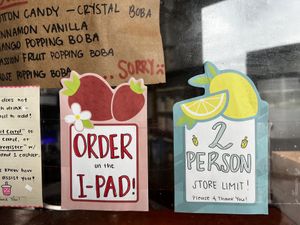 COTTON CANDY - CRYSTAL BOBA
CINNAMON VANILLA
MANGO POPPING BOBA
PASSION FRUIT POPPING BOBA
POPPING BOBA
..SORRY
does not
Card" to
card, or
register" w/
cashier.
know how
assist you?
ORDER
on the
I-PAD!
2
PERSON
STORE LIMIT!
Please & Thank You!